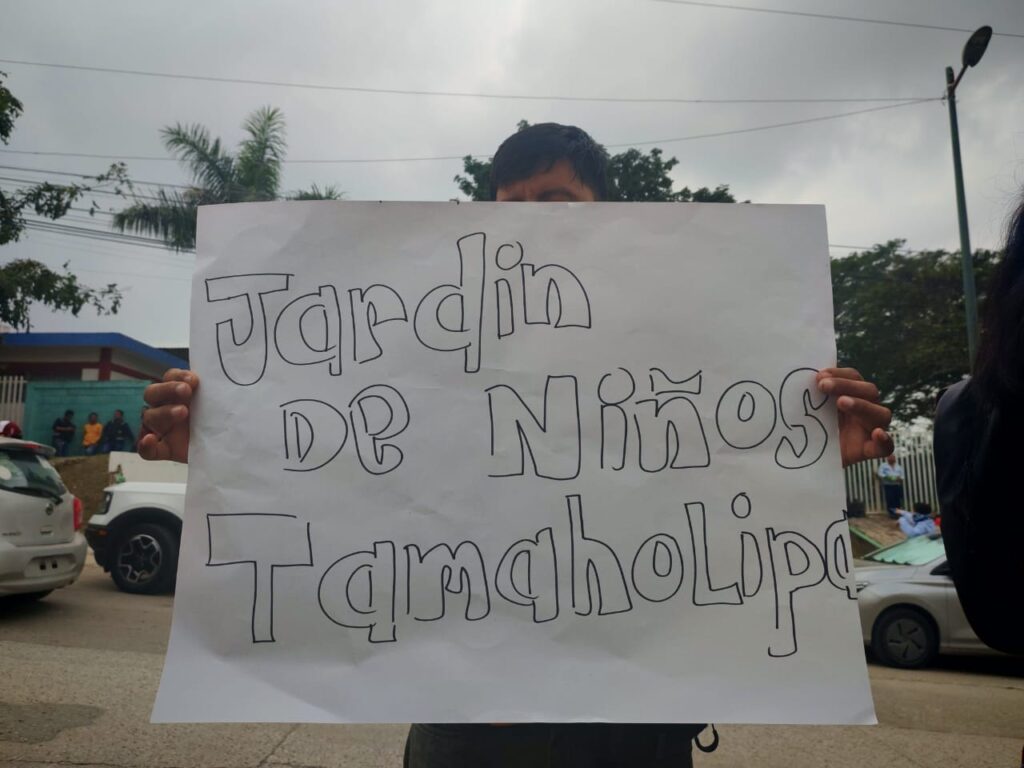 Jardin
DE Niños
Tamaholipa